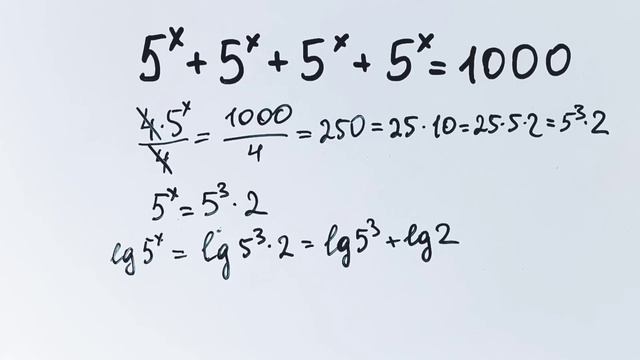 5ˣ + 5ˣ + 5ˣ + 5ˣ = 1000
4·5ˣ/4 = 1000/4 = 250 = 25·10 = 25·5·2 = 5³·2
5ˣ = 5³·2
lg5ˣ = lg5³·2 = lg5³ + lg2